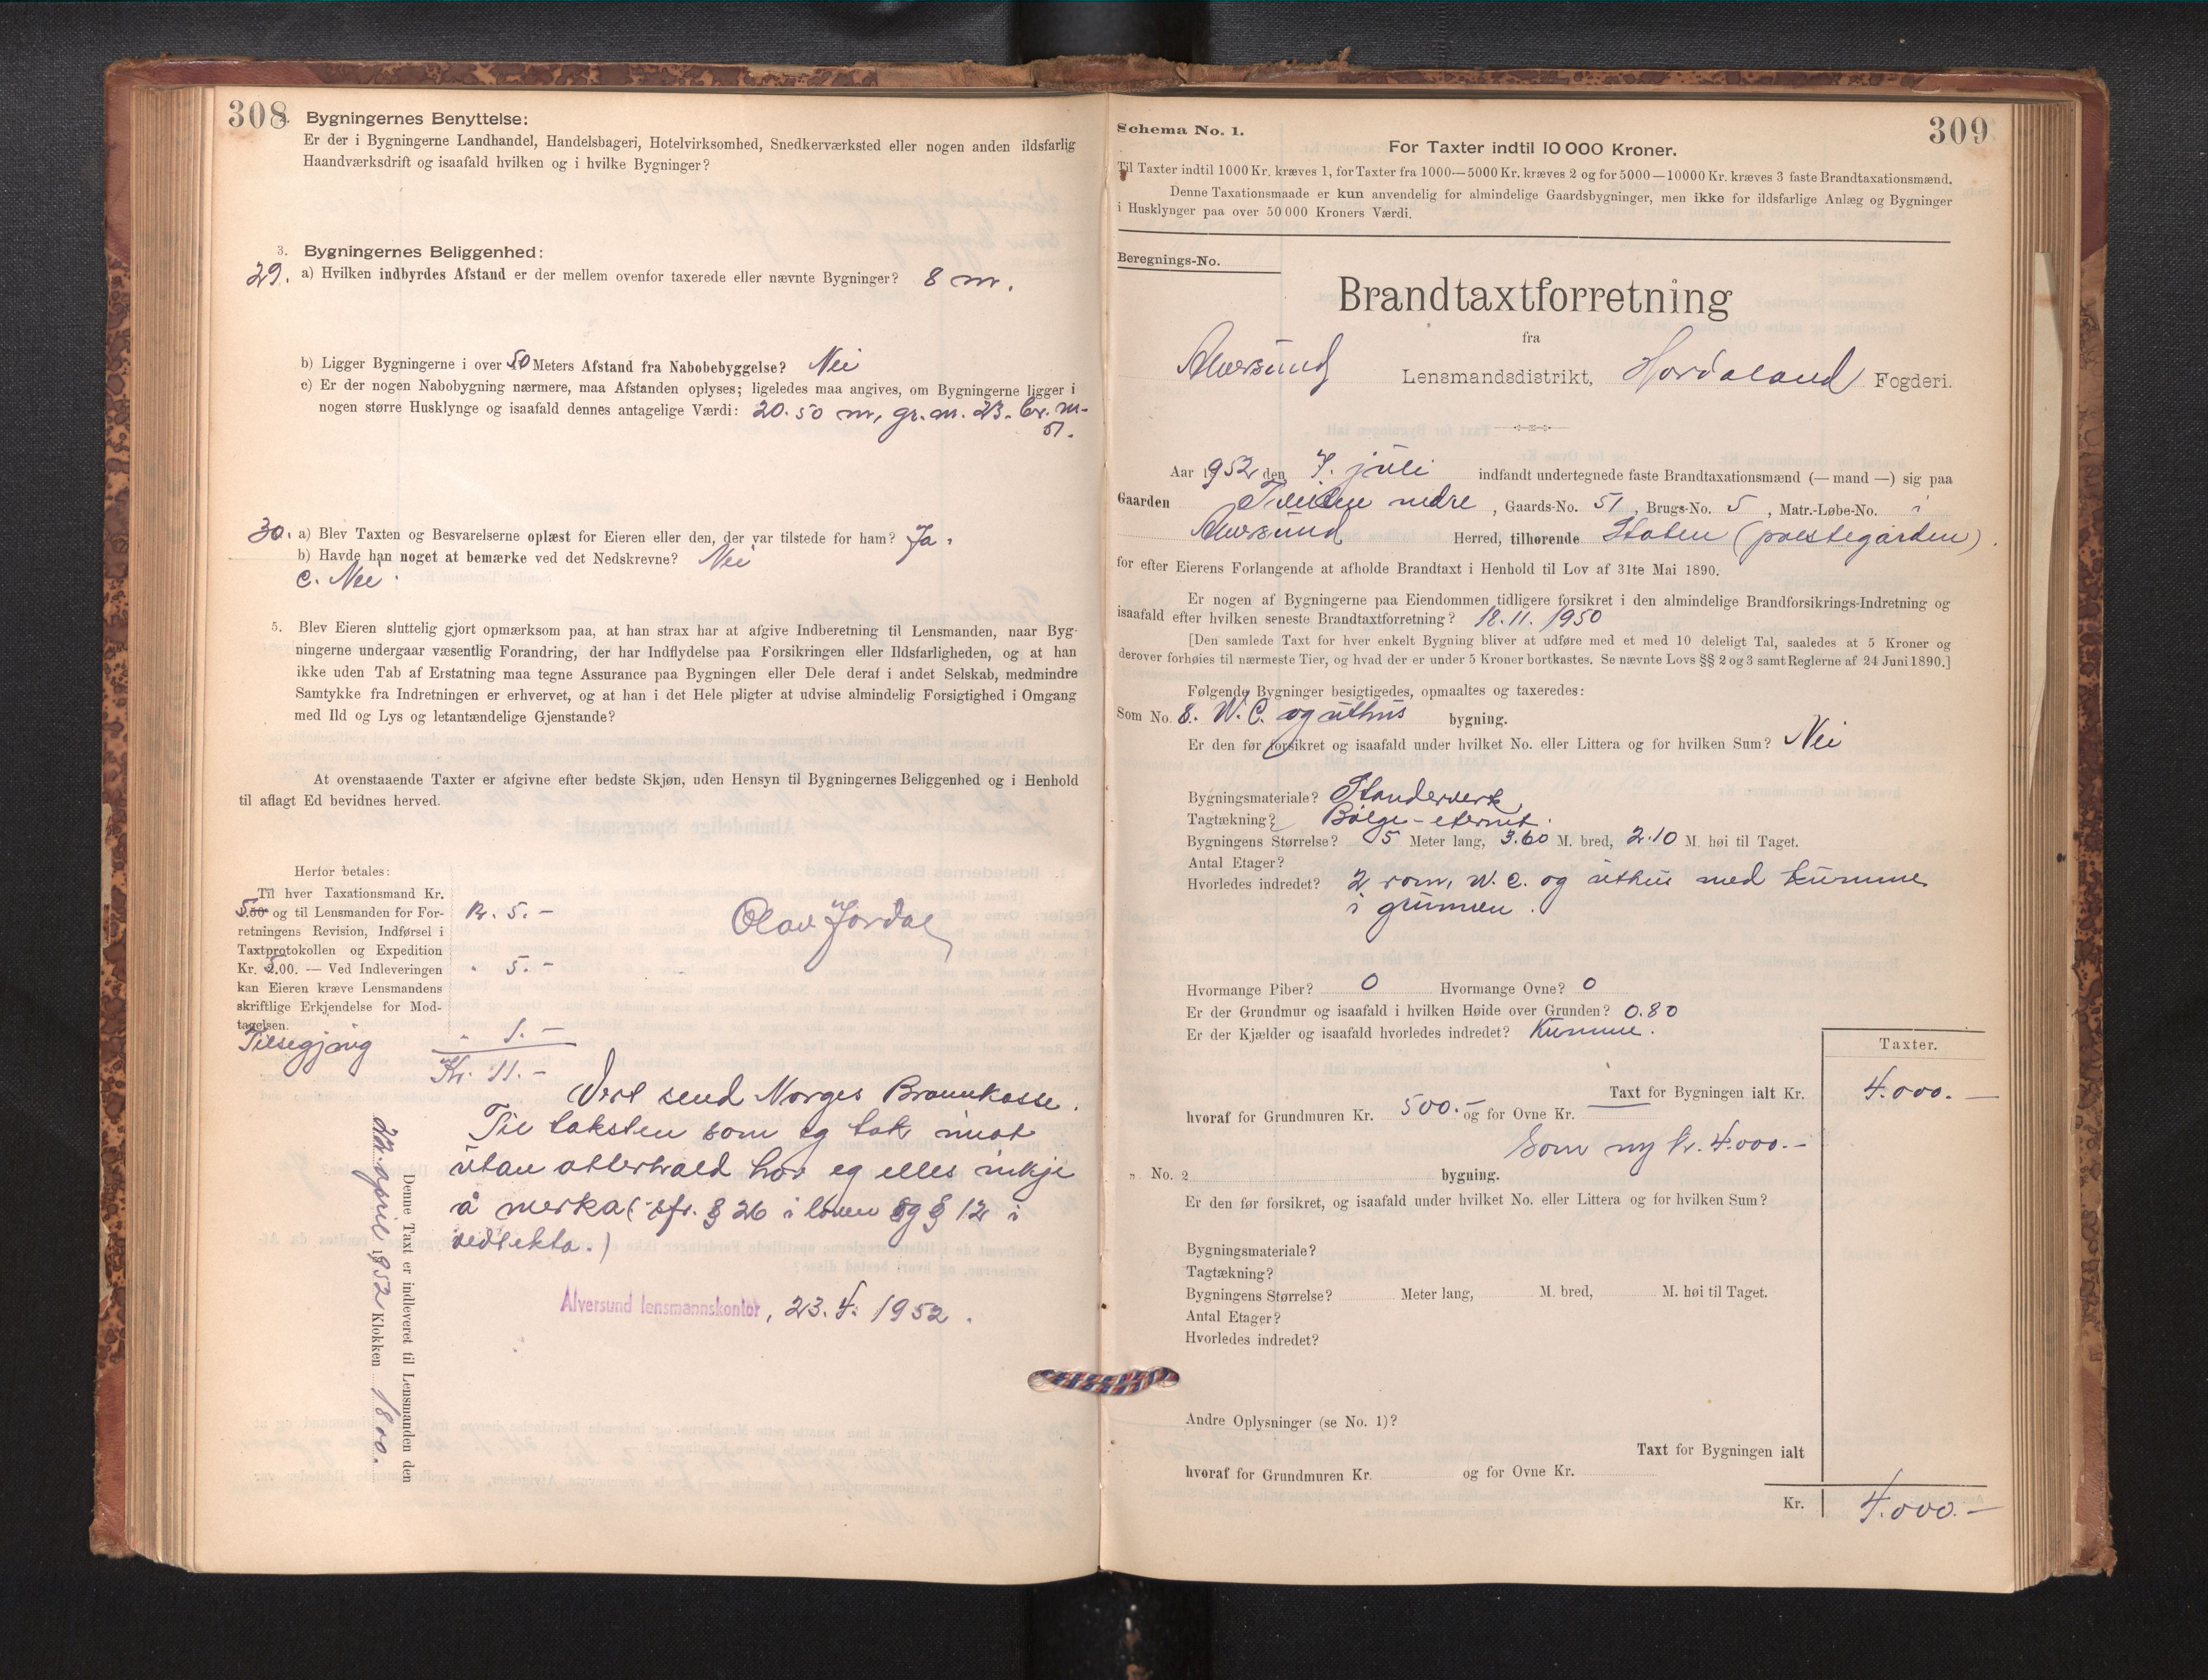 308
2. Bygningernes Benyttelse:
Er der i Bygningerne Landhandel, Handelsbageri, Hotelvirksomhed, Snedkerværksted eller nogen anden ildsfarlig
Haandværksdrift og isaafald hvilken og i hvilke Bygninger?
3. Bygningernes Beliggenhed:
29. a) Hvilken indbyrdes Afstand er der mellem ovenfor taxerede eller nævnte Bygninger? 8 m.
b) Ligger Bygningerne i over 50 Meters Afstand fra Nabobebyggelse? Nei
c) Er der nogen Nabobygning nærmere, maa Afstanden oplyses; ligeledes maa angives, om Bygningerne ligger i
nogen større Husklynge og isaafald dennes antagelige Værdi: 20.50 m, gr. m. 23. br. m.
51.
30. a) Blev Taxten og Besvarelserne oplæst for Eieren eller den, der var tilstede for ham? Ja.
b) Havde han noget at bemærke ved det Nedskrevne? Nei
c. Nei.
5. Blev Eieren sluttelig gjort opmærksom paa, at han strax har at afgive Indberetning til Lensmanden, naar Byg-
ningerne undergaar væsentlig Forandring, der har Indflydelse paa Forsikringen eller Ildsfarligheden, og at han
ikke uden Tab af Erstatning maa tegne Assurance paa Bygningen eller Dele deraf i andet Selskab, medmindre
Samtykke fra Indretningen er erhvervet, og at han i det Hele pligter at udvise almindelig Forsigtighed i Omgang
med Ild og Lys og letantændelige Gjenstande?
At ovenstaaende Taxter er afgivne efter bedste Skjøn, uden Hensyn til Bygningernes Beliggenhed og i Henhold
til aflagt Ed bevidnes herved.
Herfor betales:
Til hver Taxationsmand Kr.
5.00 og til Lensmanden for For- Kr. 5.-
retningens Revision, Indførsel i
Taxtprotokollen og Expedition
Kr. 5.00. — Ved Indleveringen " 5.-
kan Eieren kræve Lensmandens
skriftlige Erkjendelse for Mod-
tagelsen.
Tilsegjing " 1.-
Kr. 11.-
Olav Jordal
Vert send Norges Brannkasse.
Til taksten som eg tok imot
utan atterhald har eg elles inkje
å merka (jfr. § 26 i loven og § 12 i
vedtekta.)
Alversund lensmannskontor, 23.4. 1952.
Denne Taxt er indleveret til Lensmanden den
22. april 1952 Klokken 18 00.
309
Schema No. 1.
For Taxter indtil 10 000 Kroner.
Til Taxter indtil 1000 Kr. kræves 1, for Taxter fra 1000—5000 Kr. kræves 2 og for 5000—10000 Kr. kræves 3 faste Brandtaxationsmænd.
Denne Taxationsmaade er kun anvendelig for almindelige Gaardsbygninger, men ikke for ildsfarlige Anlæg og Bygninger
i Husklynger paa over 50 000 Kroners Værdi.
Beregnings-No.
Brandtaxtforretning
fra
Alversund Lensmandsdistrikt, Hordaland Fogderi.
Aar 1952 den 7. juli indfandt undertegnede faste Brandtaxationsmænd (— mand —) sig paa
Gaarden Tveiten nedre, Gaards-No. 51, Brugs-No. 5, Matr.-Løbe-No. i
Alversund Herred, tilhørende Staten (prestegården).
for efter Eierens Forlangende at afholde Brandtaxt i Henhold til Lov af 31te Mai 1890.
Er nogen af Bygningerne paa Eiendommen tidligere forsikret i den almindelige Brandforsikrings-Indretning og
isaafald efter hvilken seneste Brandtaxtforretning? 18.11.1950
[Den samlede Taxt for hver enkelt Bygning bliver at udføre med et med 10 deleligt Tal, saaledes at 5 Kroner og
derover forhøies til nærmeste Tier, og hvad der er under 5 Kroner bortkastes. Se nævnte Lovs §§ 2 og 3 samt Reglerne af 24 Juni 1890.]
Følgende Bygninger besigtigedes, opmaaltes og taxeredes:
Som No. 8. W.C. og uthus bygning.
Er den før forsikret og isaafald under hvilket No. eller Littera og for hvilken Sum? Nei
Bygningsmateriale? Standerverk
Tagtækning? Bølge-eternit.
Bygningens Størrelse? 5 Meter lang, 3.60 M. bred, 2.10 M. høi til Taget.
Antal Etager?
Hvorledes indredet? 2 rom, W.C. og uthus med kumme
i grunnen.
Hvormange Piber? 0 Hvormange Ovne? 0
Er der Grundmur og isaafald i hvilken Høide over Grunden? 0.80
Er der Kjælder og isaafald hvorledes indredet? Kumme.
Taxter.
Taxt for Bygningen ialt Kr. 4.000.-
hvoraf for Grundmuren Kr. 500.- og for Ovne Kr.
Som ny kr. 4.000.-
" No. 2 bygning.
Er den før forsikret, og isaafald under hvilket No. eller Littera og for hvilken Sum?
Bygningsmateriale?
Tagtækning?
Bygningens Størrelse? Meter lang, M. bred, M. høi til Taget.
Antal Etager?
Hvorledes indredet?
Andre Oplysninger (se No. 1)?
Taxt for Bygningen ialt
hvoraf for Grundmuren Kr. og for Ovne Kr.
Kr. 4.000.-